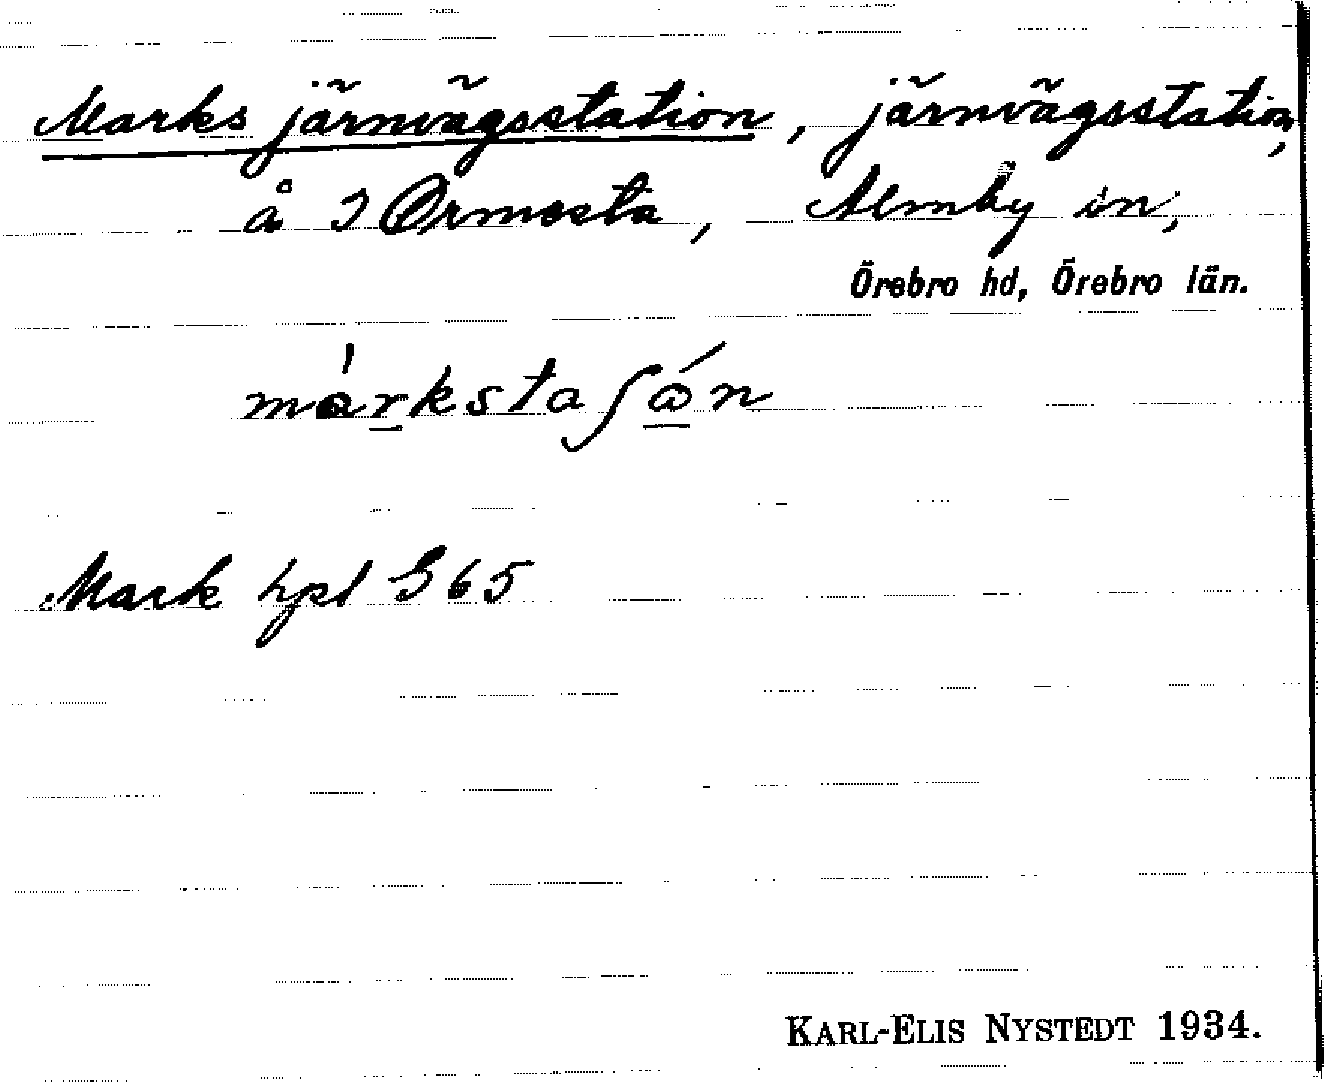 Marks järnvägsstation, järnvägsstation,
å 2 Ormesta, Almby sn,
Örebro hd, Örebro län.
Mark hpl G 65
KARL-ELIS NYSTEDT 1934.